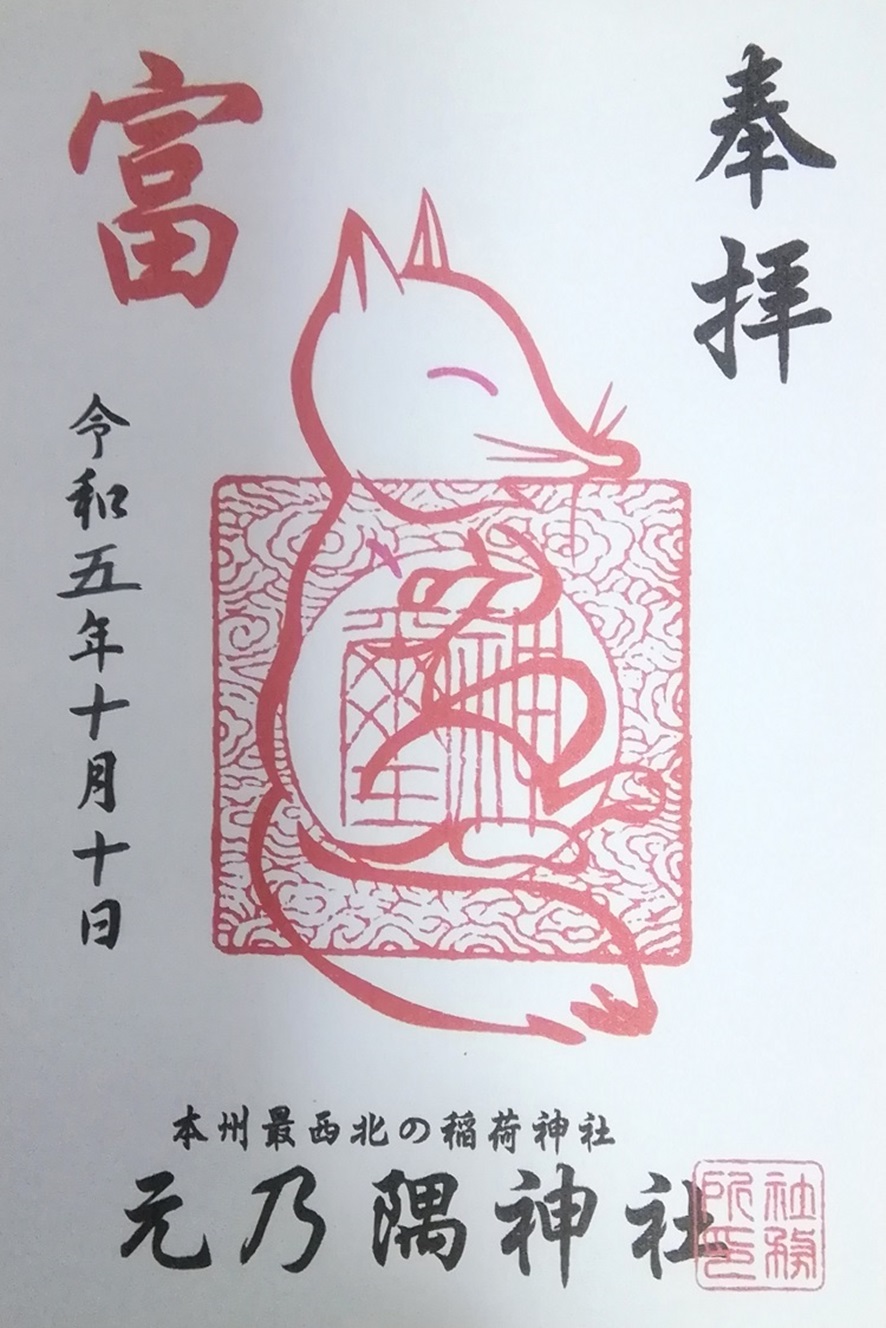 奉拝
富
令和五年十月十日
本州最西北の稲荷神社
元乃隅神社
社務所印